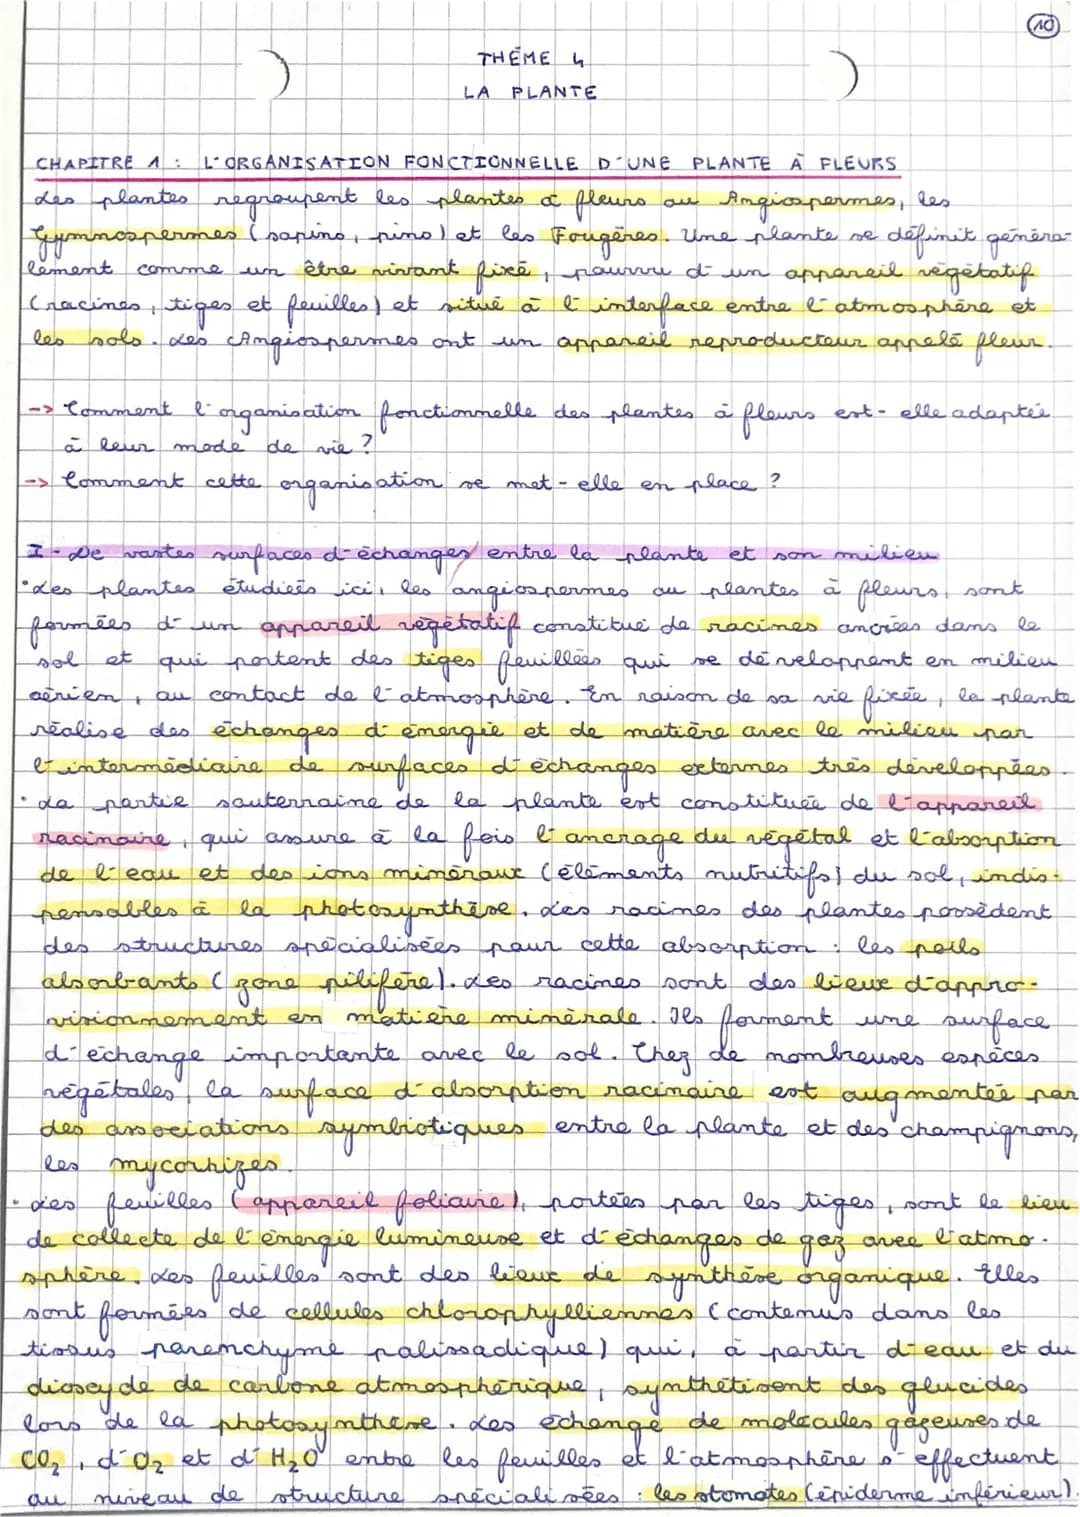 10
THÈME 4
LA PLANTE
CHAPITRE 1 : L'ORGANISATION FONCTIONNELLE D'UNE PLANTE À FLEURS
Les plantes regroupent les plantes à fleurs ou Angiospermes, les
Gymnospermes (sapins, pins) et les Fougères. Une plante se définit généra-
lement comme un être vivant fixé, pourvu d'un appareil végétatif
(racines, tiges et feuilles) et situé à l'interface entre l'atmosphère et
les sols. Les Angiospermes ont un appareil reproducteur appelé fleur.
-> Comment l'organisation fonctionnelle des plantes à fleurs est-elle adaptée
à leur mode de vie ?
-> Comment cette organisation se met-elle en place ?
I - De vastes surfaces d'échanges entre la plante et son milieu
• Les plantes étudiées ici, les angiospermes ou plantes à fleurs, sont
formées d'un appareil végétatif constitué de racines ancrées dans le
sol et qui portent des tiges feuillées qui se développent en milieu
aérien, au contact de l'atmosphère. En raison de sa vie fixée, la plante
réalise des échanges d'énergie et de matière avec le milieu par
l'intermédiaire de surfaces d'échanges externes très développées.
• La partie souterraine de la plante est constituée de l'appareil
racinaire, qui assure à la fois l'ancrage du végétal et l'absorption
de l'eau et des ions minéraux (éléments nutritifs) du sol, indis-
pensables à la photosynthèse. Les racines des plantes possèdent
des structures spécialisées pour cette absorption : les poils
absorbants (zone pilifère). Les racines sont des lieux d'appro-
visionnement en matière minérale. Ils forment une surface
d'échange importante avec le sol. Chez de nombreuses espèces
végétales, la surface d'absorption racinaire est augmentée par
des associations symbiotiques entre la plante et des champignons,
les mycorhizes.
• Les feuilles (appareil foliaire), portées par les tiges, sont le lieu
de collecte de l'énergie lumineuse et d'échanges de gaz avec l'atmo-
sphère. Les feuilles sont des lieux de synthèse organique. Elles
sont formées de cellules chlorophylliennes (contenus dans les
tissus parenchyme palissadique) qui, à partir d'eau et du
dioxyde de carbone atmosphérique, synthétisent des glucides
lors de la photosynthèse. Les échange de molécules gazeuses de
CO₂, d'O₂ et d'H₂O entre les feuilles et l'atmosphère s'effectuent
au niveau de structure spécialisées : les stomates (épiderme inférieur).